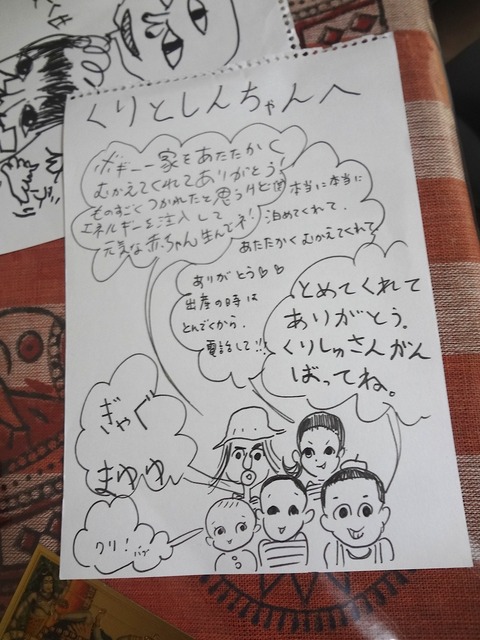 くりとしんちゃんへ
ボギー一家をあたたかく
むかえてくれてありがとう!
ものすごくつかれたと思うけど
エネルギーを注入して
元気な赤ちゃん生んでネ!
本当に本当に
泊めてくれて、
あたたかくむかえてくれて
ありがとう♡♡
出産の時は
とんでくから、
電話して!!
とめてくれて
ありがとう。
くりしゅさんがん
ばってね。
ぎゃぐ
まゆゆん
クリ!バブ